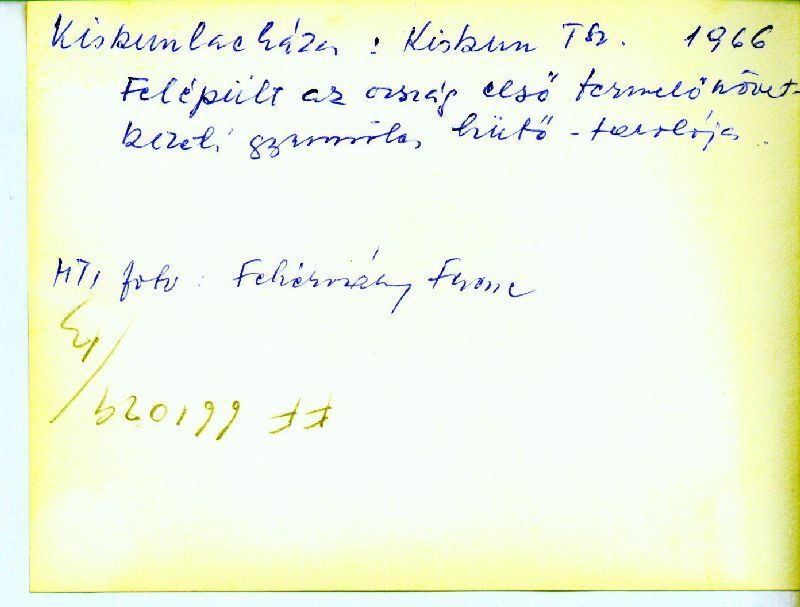 Kiskunlacháza : Kiskun Tsz. 1966
Felépült az ország első termelőszövet-
kezeti gyümölcs hűtő-tárolója.
MTI foto : Fehérváry Ferenc